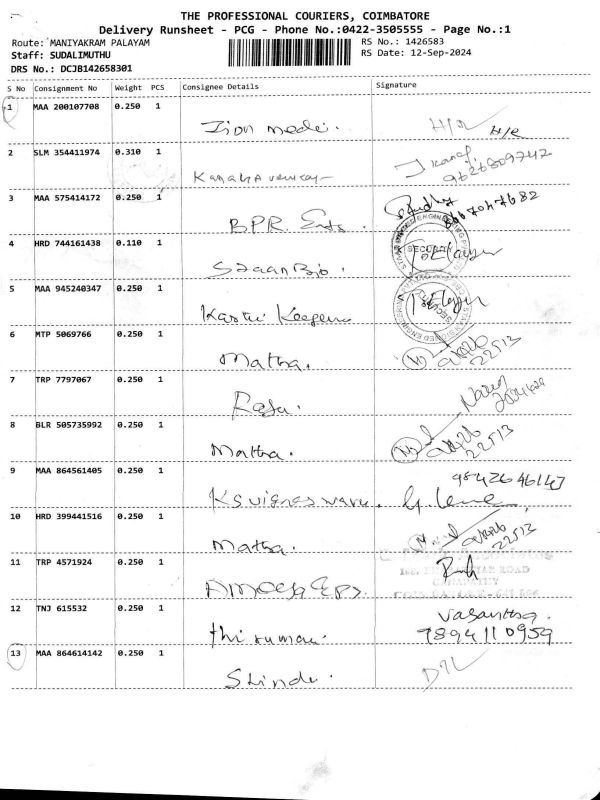 THE PROFESSIONAL COURIERS, COIMBATORE
Delivery Runsheet - PCG - Phone No.:0422-3505555 - Page No.:1
Route: MANIYAKRAM PALAYAM RS No.: 1426583
Staff: SUDALIMUTHU RS Date: 12-Sep-2024
DRS No.: DCJB142658301
S No Consignment No Weight PCS Consignee Details Signature
1 MAA 200107708 0.250 1
Zion medi. H/R H/R
2 SLM 354411974 0.310 1
9626809742
3 MAA 575414172 0.250 1
BPR Ents.
4 HRD 744161438 0.110 1
SECURITY
5 MAA 945240347 0.250 1
6 MTP 5069766 0.250 1
Matha. 22513
7 TRP 7797067 0.250 1
Raju.
8 BLR 505735992 0.250 1
Matha. 22513
9 MAA 864561405 0.250 1
Ksvignes waru. 9842646147
10 HRD 399441516 0.250 1
Matha. 22513
11 TRP 4571924 0.250 1
ROAD
12 TNJ 615532 0.250 1
thirumau. Vasantha.
7894110959
13 MAA 864614142 0.250 1
Shindu. D/L